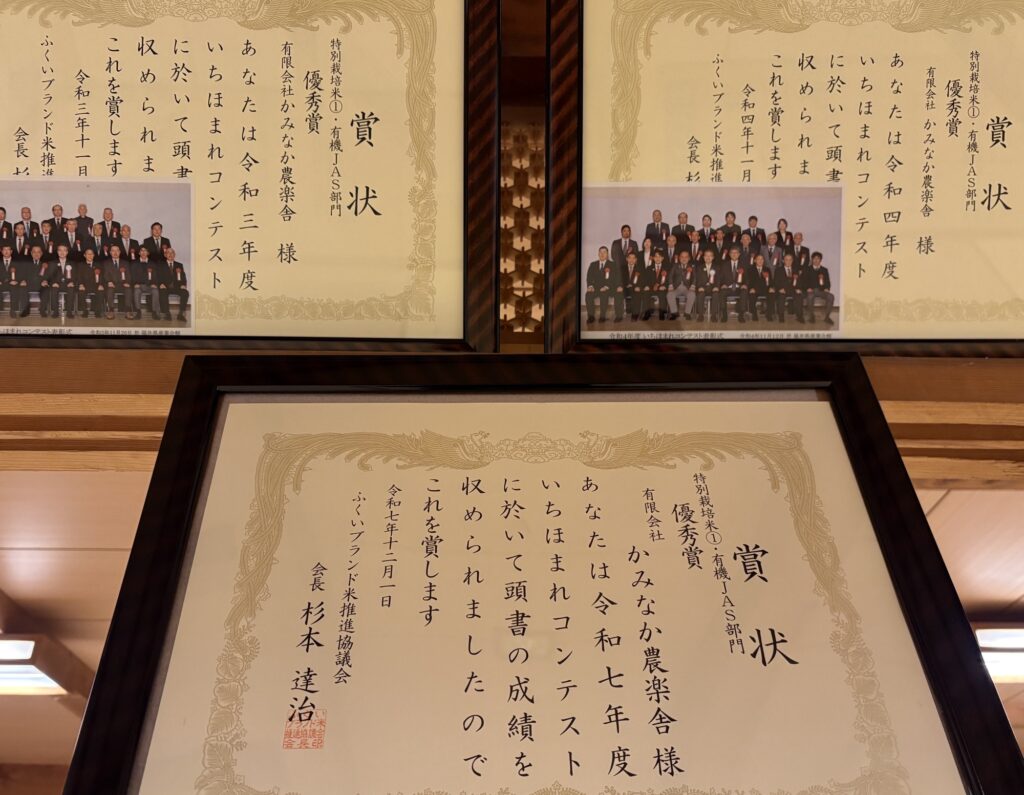 賞状
特別栽培米①・有機JAS部門
優秀賞
有限会社かみなか農楽舎 様
あなたは令和三年度
いちほまれコンテスト
に於いて頭書
収められま
これを賞します
令和三年十一月
ふくいブランド米推進
会長 杉
いちほまれコンテスト表彰式
賞状
特別栽培米①・有機JAS部門
優秀賞
有限会社 かみなか農楽舎 様
あなたは令和四年度
いちほまれコンテスト
に於いて頭書
収められま
これを賞します
令和四年十一月
ふくいブランド米推
会長 杉
令和4年度 いちほまれコンテスト表彰式
賞状
特別栽培米①・有機JAS部門
優秀賞
有限会社 かみなか農楽舎 様
あなたは令和七年度
いちほまれコンテスト
に於いて頭書の成績を
収められましたので
これを賞します
令和七年十二月一日
ふくいブランド米推進協議会
会長 杉本 達治